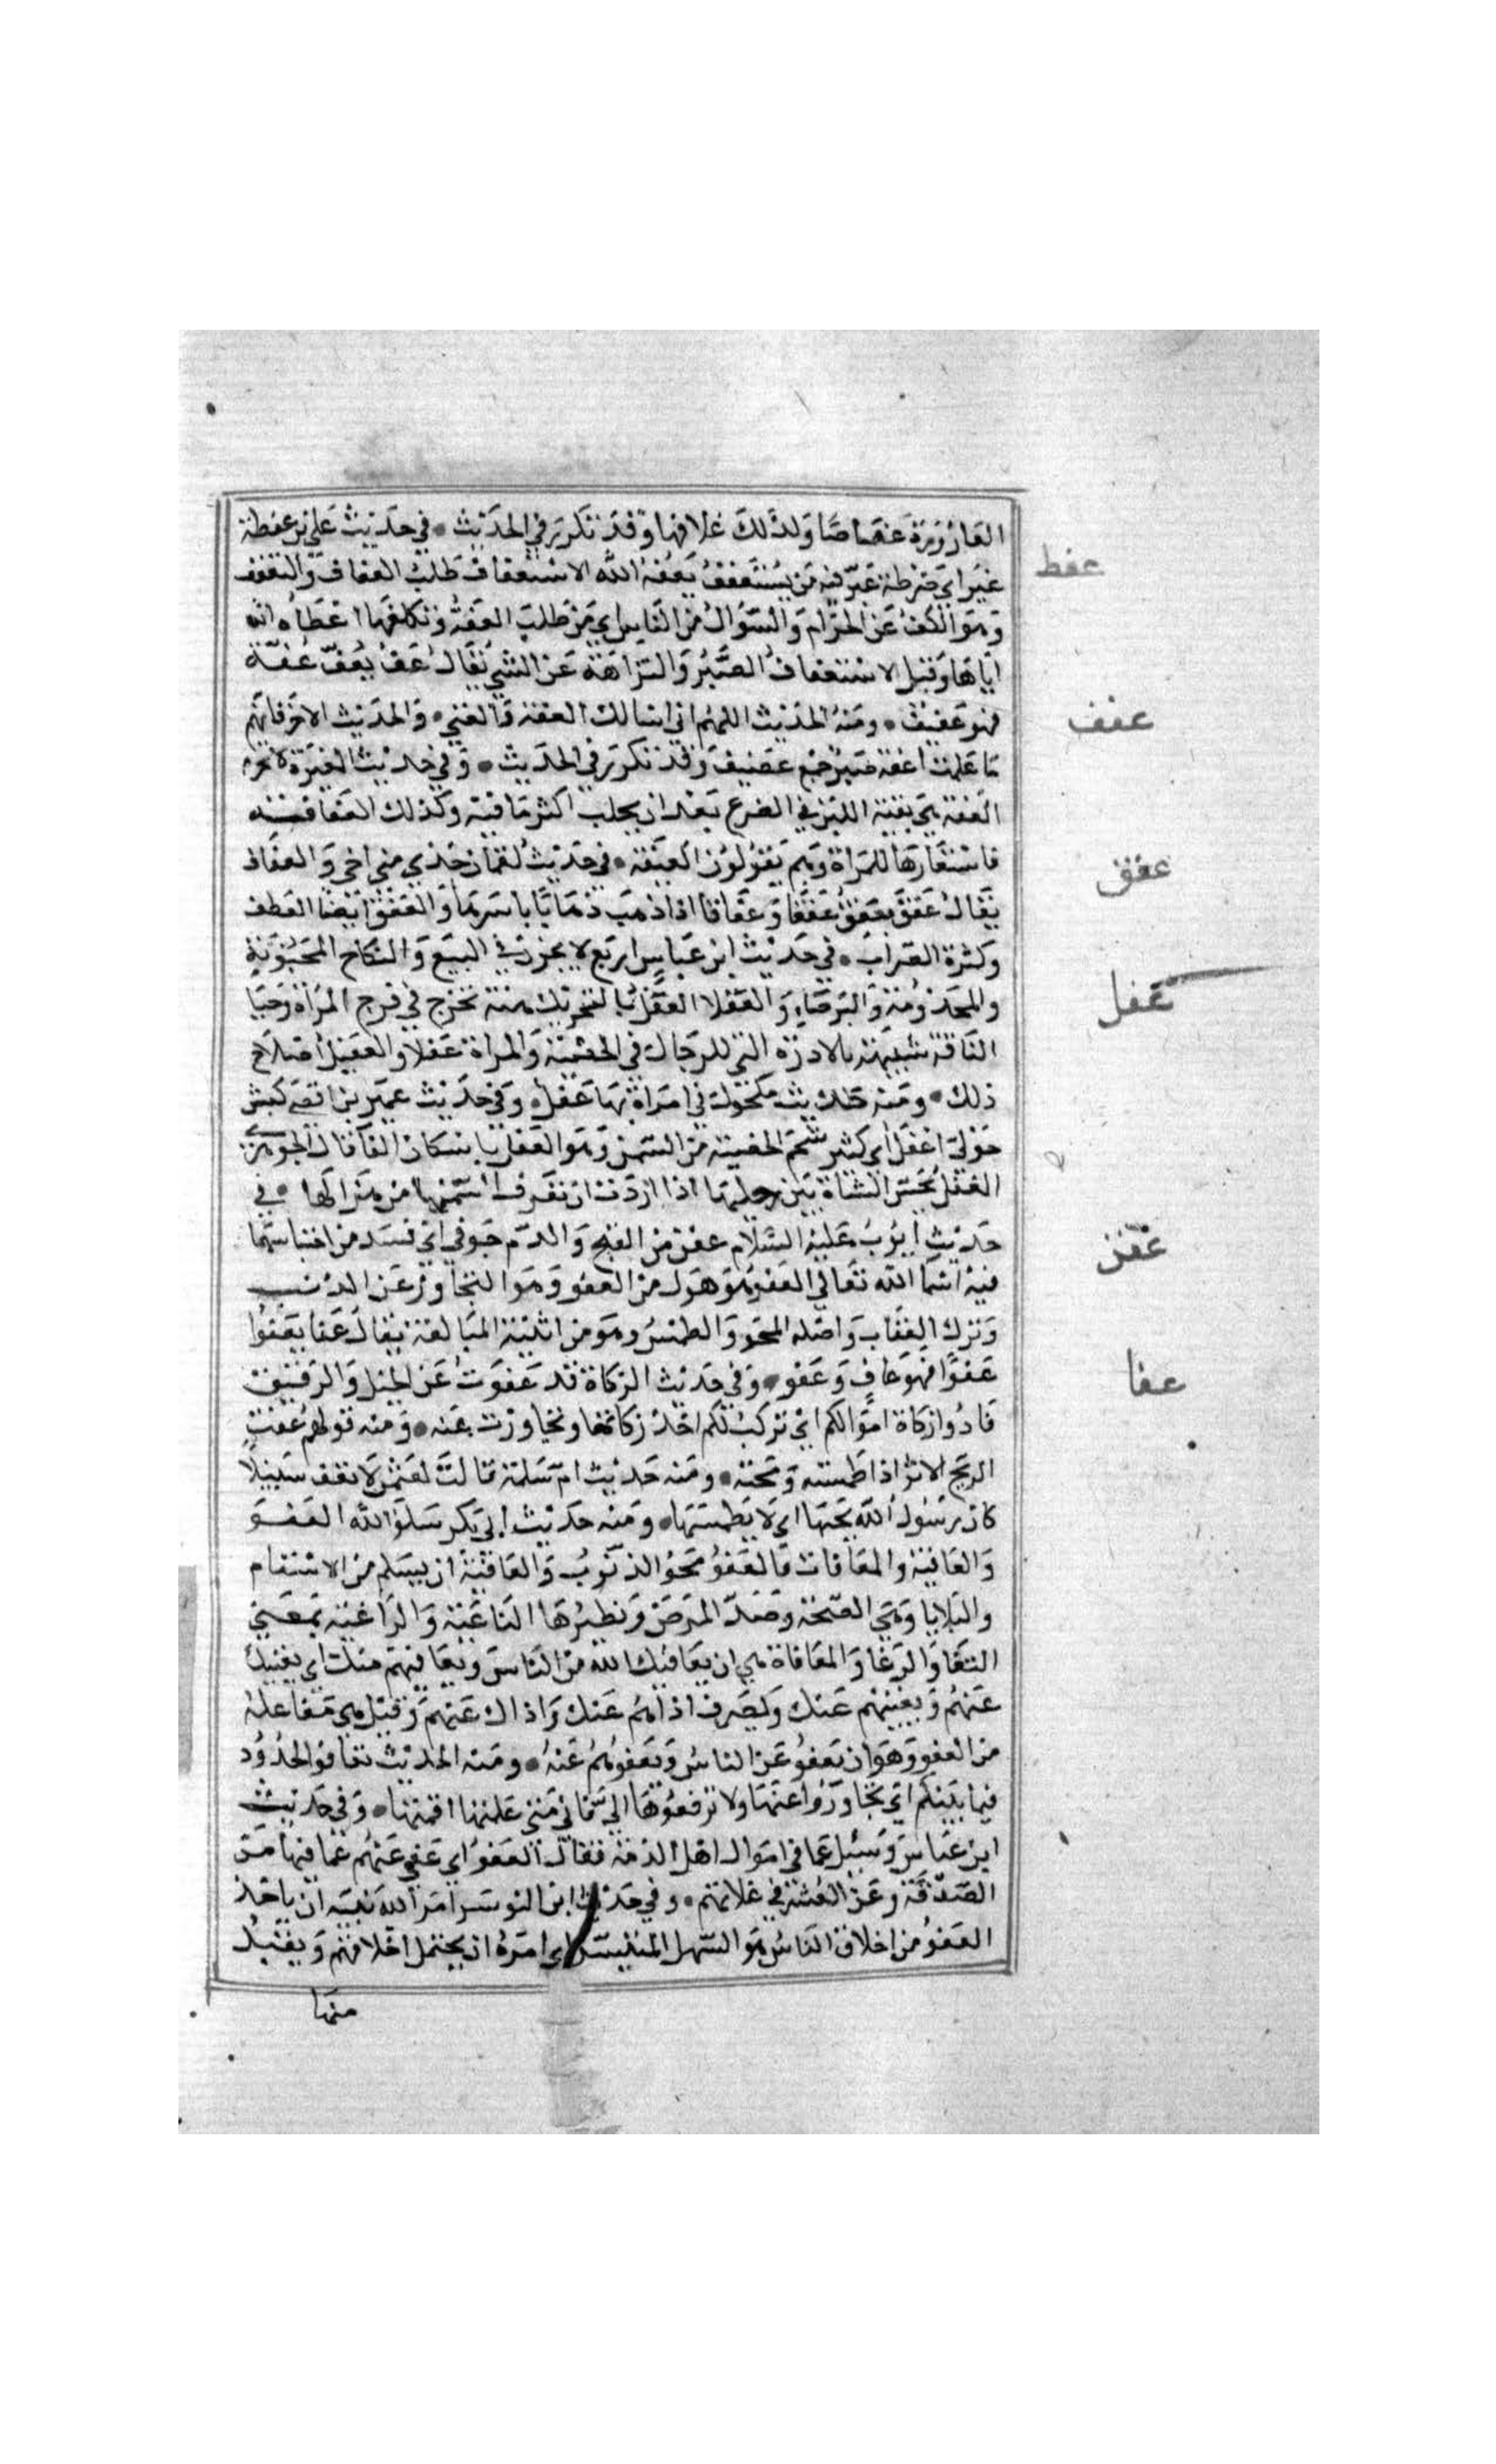 القارورة عفاصا ولذلك غلافها وقد تكرر في الحديث • في حديث علي من عفطة
عفط
عنز اي ضرطة عنز فيه من يستعفف يعفه الله الاستعفاف طلب العفاف والتعفف
وهو الكف عن الحرام والسؤال من الناس اي من طلب العفة وتكلفها اعطاه الله
اياها وقيل الاستعفاف الصبر والنزاهة عن الشي يقال عف يعف عفة
عفف
فهو عفيف • ومنه الحديث اللهم اني اسالك العفة والغني • والحديث الاخر فانهم
ما علمت اعفة صبر جمع عفيف وقد تكرر في الحديث • وفي حديث المغيرة لا تحرم
العفة هي بقية اللبن في الضرع بعد ان يحلب اكثر ما فيه وكذلك العفافة
فاستعارها للمراة وهم يقولون العيفة • في حديث لقمان خذي مني اخي ذا العفاق
عفق
يقال عفق يعفق عفقا وعفاقا اذا ذهب ذهابا باسرها والعفق ايضا العطف
وكثرة الضراب • في حديث ابن عباس اربع لا يجزن في البيع والنكاح المجنونة
والمجذومة والبرصاء والعفلا العفل بالتحريك هنة تخرج في فرج المراة وحيا
عفل
الناقة شبيهة بالادرة التي للرجال في الخصية والمراة عفلا والعفيل اصلاح
ذلك • ومنه حديث مكحول في امراة بها عفل • وفي حديث عمير بن افصى كبش
حولي اعفل اي كثير شحم الخصية من السمن وهو العفل باسكان الفا قال الجوهري
العفل مجس الشاة بين رجليها اذا اردت ان تعرف سمنها من هزالها • في
حديث ايوب عليه السلام عفن من القيح والدم جوفي اي فسد من احتباسهما
عفن
فيه اسما الله تعالي العفو هو فعول من العفو وهو التجاوز عن الذنب
وترك العقاب واصله المحو والطمس وهو من ابنية المبالغة يقال عفا يعفوا
عفوا فهو عاف وعفو • وفي حديث الزكاة قد عفوت عن الخيل والرقيق
عفا
فادوا زكاة اموالكم اي تركت لكم اخذ زكاتها وتجاوزت عنه • ومنه قولهم عفت
الريح الاثر اذا طمسته ومحته • ومنه حديث ام سلمة قالت لعثمن لا تعف سبيلا
كان رسول الله لحبها اي لا يطمسها • ومنه حديث ابي بكر سلوا الله العفو
والعافية والمعافات فالعفو محو الذنوب والعافية ان يسلم من الاسقام
والبلايا وهي الصحة وضد المرض ونظيرها الثاغية والراغية بمعني
الثغا والرغا والمعافاة هي ان يعافيك الله من الناس ويعافيهم منك اي يغنيك
عنهم ويغنيهم عنك ويصرف اذاهم عنك واذاك عنهم وقيل هي مفاعلة
من العفو وهو ان تعفو عن الناس وتعفو هم عنه • ومنه الحديث تعافوا الحدود
فيما بينكم اي تجاوزوا عنها ولا ترفعوها الي فاني متي علمتها اقمتها • وفي حديث
ابن عباس وسئل عما في اموال اهل الذمة فقال العفو اي عفي عنهم عما فيها من
الصدقة وعن العشر في غلاتهم • وفي حديث ابن الزبير امر الله نبيه ان ياخذ
العفو من اخلاق الناس هو السهل المتيسر اي امره ان يحتمل اخلاقهم ويقبل
منها